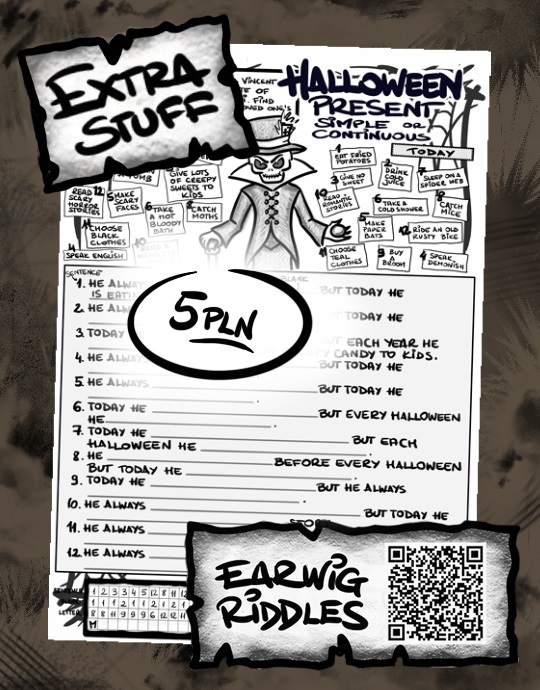 EXTRA
STUFF
VINCENT
HALLOWEEN
PRESENT
SIMPLE OR
CONTINUOUS
TODAY
GIVE LOTS
OF CREEPY
SWEETS TO
KIDS
12 READ
SCARY
HORROR
STORIES
5 MAKE
SCARY
FACES
6 TAKE
A HOT
BLOODY
BATH
8 CATCH
MOTHS
11 CHOOSE
BLACK
CLOTHES
4 SPEAK ENGLISH
1 EAT FRIED
POTATOES
2 DRINK
COLD
JUICE
7 SLEEP ON A
SPIDER WEB
3 GIVE NO
SWEET
10 READ
ROMANTIC
STORIES
6 TAKE A
COLD SHOWER
8 CATCH
MICE
5 MAKE
PAPER
BATS
12 RIDE AN OLD
RUSTY BIKE
11 CHOOSE
TEAL
CLOTHES
9 BUY
A
BROOM
4 SPEAK
DEMONISH
SENTENCE
1. HE ALWAYS BUT TODAY HE
IS EATING
2. HE ALWAYS BUT TODAY HE
3. TODAY BUT EACH YEAR HE
CANDY TO KIDS.
4. HE ALWAYS BUT TODAY HE
5. HE ALWAYS BUT TODAY HE
6. TODAY HE BUT EVERY HALLOWEEN
HE
7. TODAY HE BUT EACH
HALLOWEEN HE
8. HE BEFORE EVERY HALLOWEEN
BUT TODAY HE
9. TODAY HE BUT HE ALWAYS
10. HE ALWAYS BUT TODAY HE
11. HE ALWAYS
12. HE ALWAYS
5 PLN
EARWIG
RIDDLES